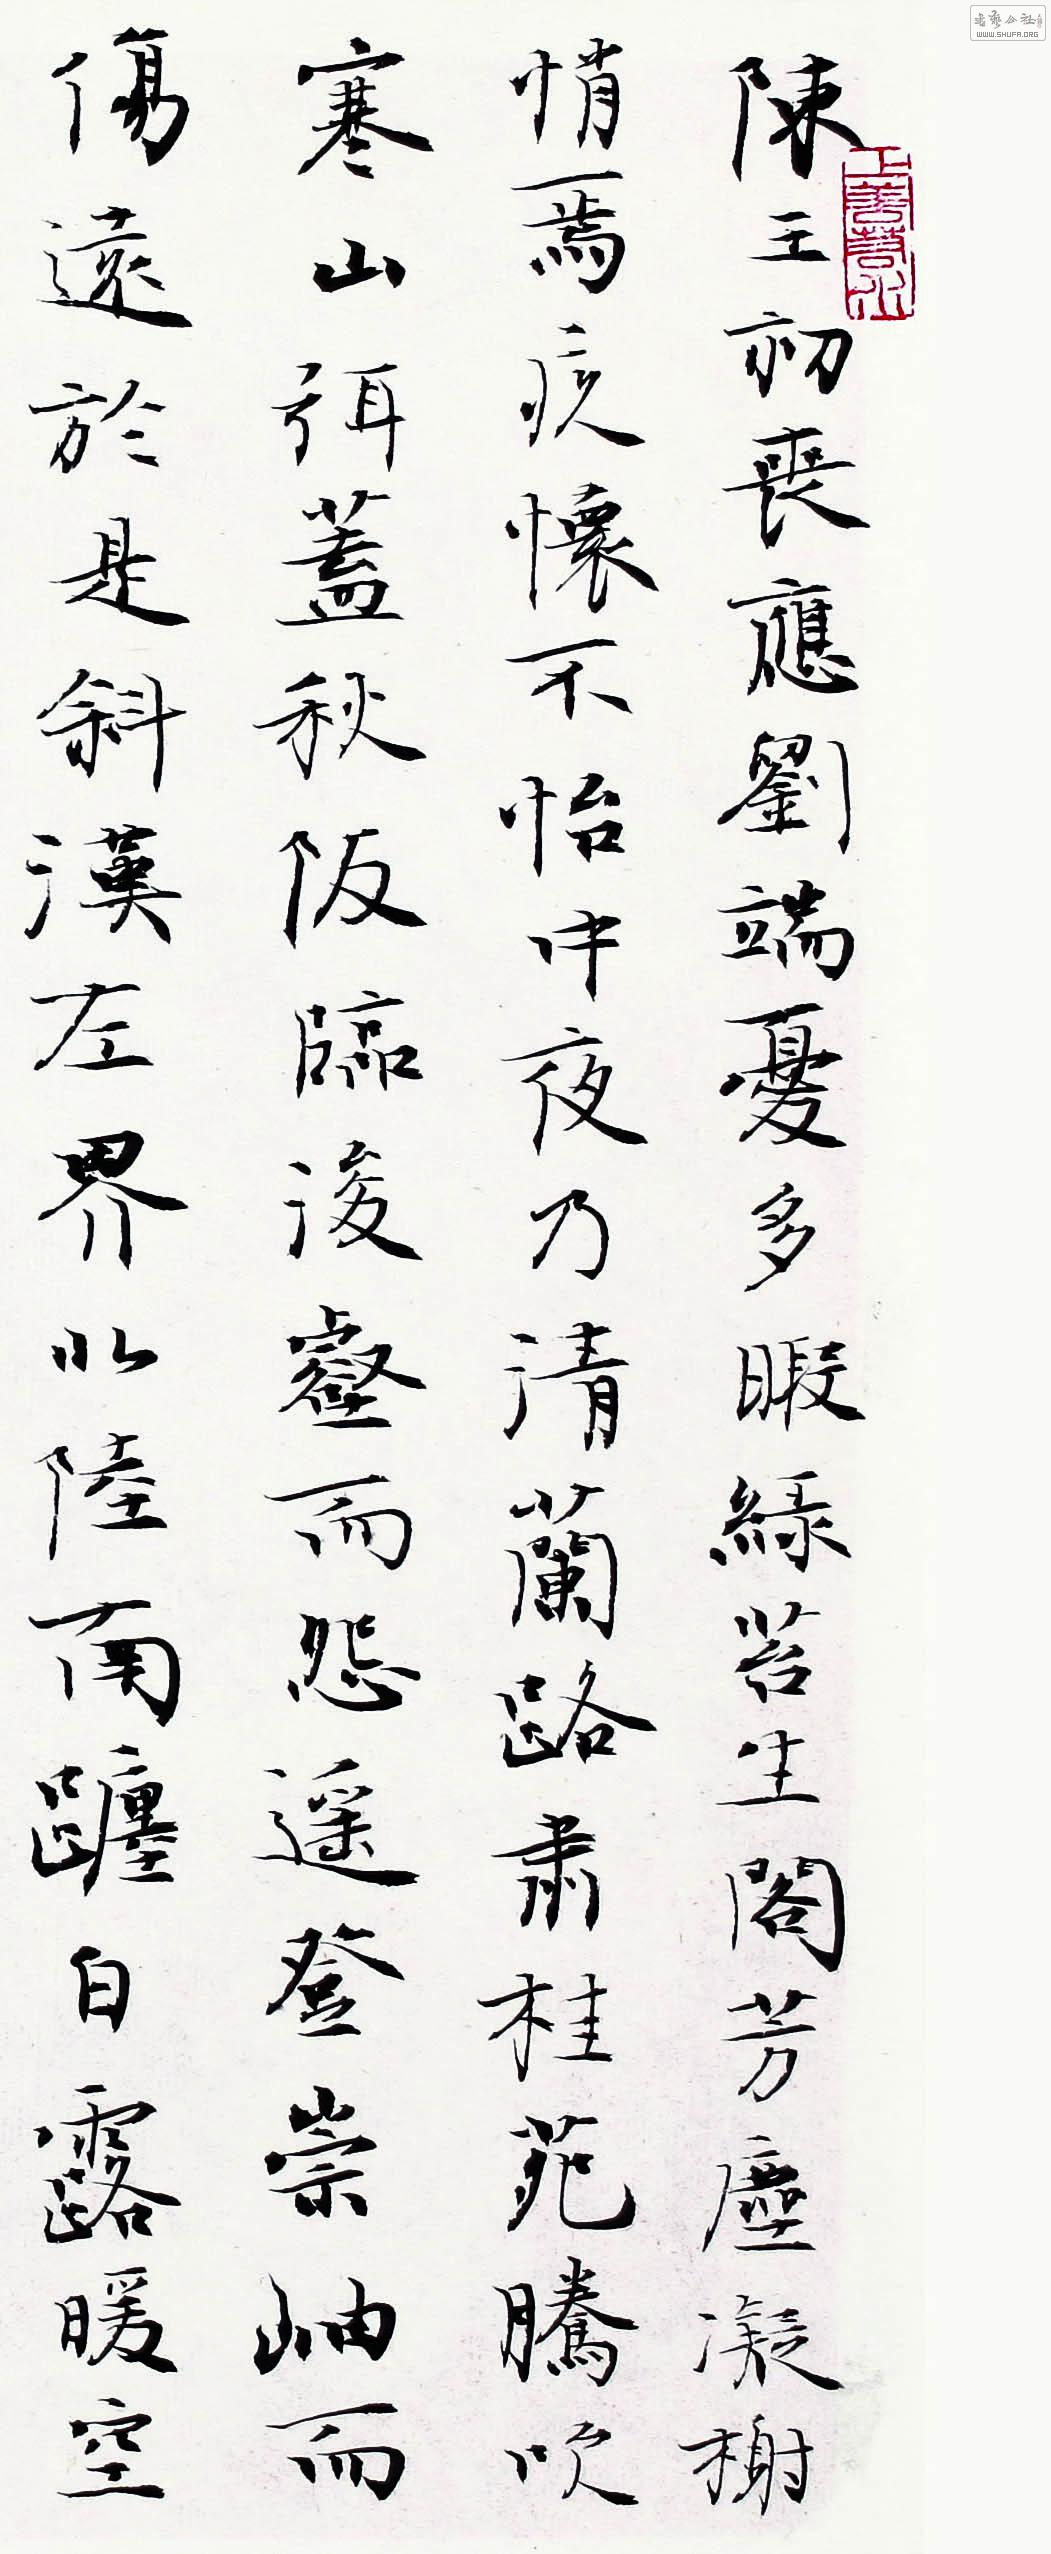 陳王初喪應劉端憂多暇綠苔生閣芳塵凝榭
悄焉疚懷不怡中夜乃清蘭路肅桂苑騰吹
寒山弭蓋秋阪臨浚壑而怨遥登崇岫而
傷遠於是斜漢左界北陸南躔白露曖空
上善若水
书艺公社
WWW.SHUFA.ORG